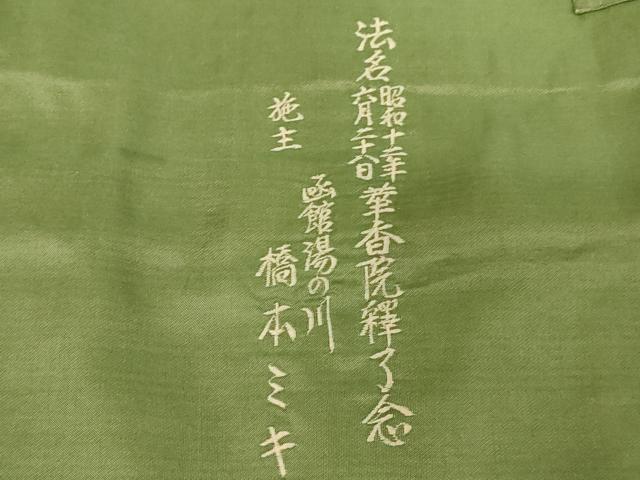 法名 昭和十二年六月二十八日 華香院釋了念
施主 函館湯の川 橋本ミキ